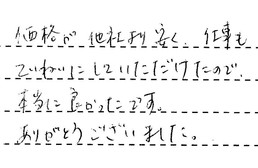 価格が他社より安く、仕事も
ていねいにしていただけたので、
本当に良かったです。
ありがとうございました。